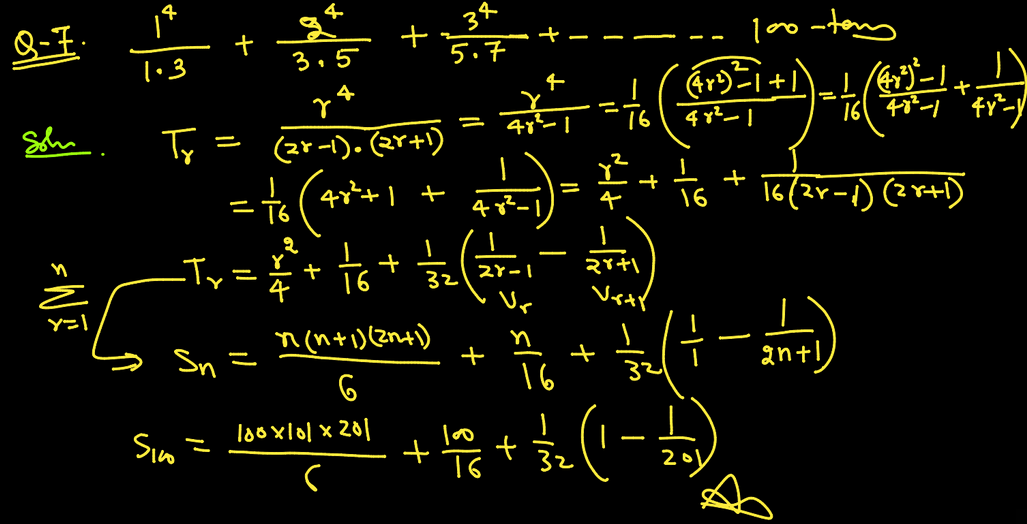 Q-7. 1⁴/1·3 + 2⁴/3·5 + 3⁴/5·7 + - - - - - - - 100-terms
Soln. T_r = r⁴/((2r-1)·(2r+1)) = r⁴/(4r²-1) = 1/16 (((4r²)²-1+1)/(4r²-1)) = 1/16 (((4r²)²-1)/(4r²-1) + 1/(4r²-1))
= 1/16 (4r²+1 + 1/(4r²-1)) = r²/4 + 1/16 + 1/(16(2r-1)(2r+1))
n
Σ T_r = r²/4 + 1/16 + 1/32 (1/(2r-1) - 1/(2r+1))
r=1 V_r V_{r+1}
→ S_n = n(n+1)(2n+1)/6 + n/16 + 1/32 (1/1 - 1/(2n+1))
S_100 = 100×101×201/6 + 100/16 + 1/32 (1 - 1/201)